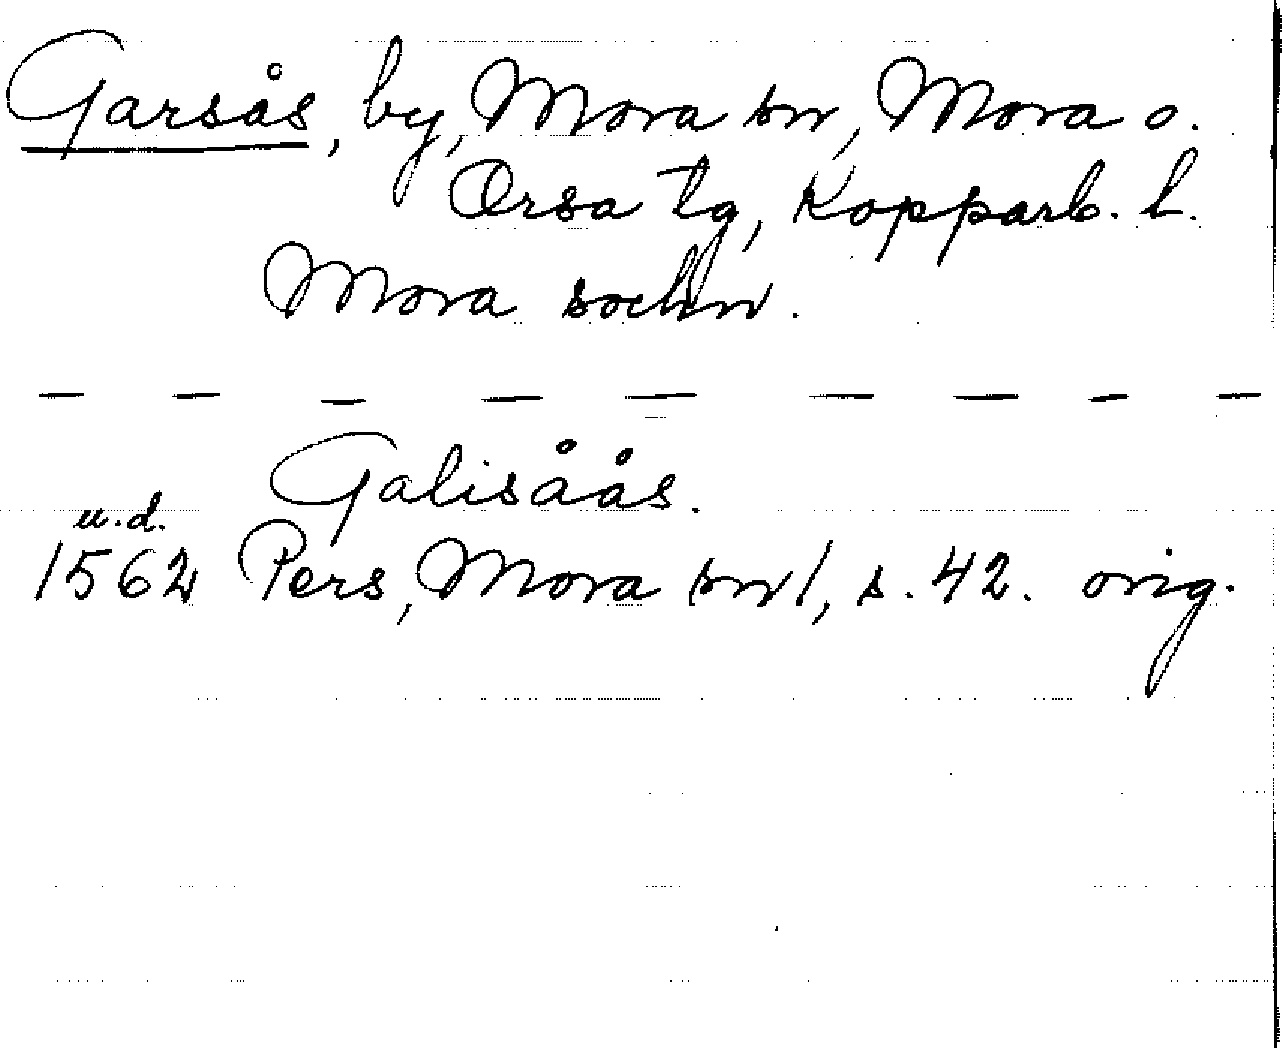 Garsås, by, Mora sn, Mora o.
Orsa tg, Kopparb. l.
Mora sochn.
Galisåås.
u.d.
1562 Pers, Mora sn 1, s. 42. orig.